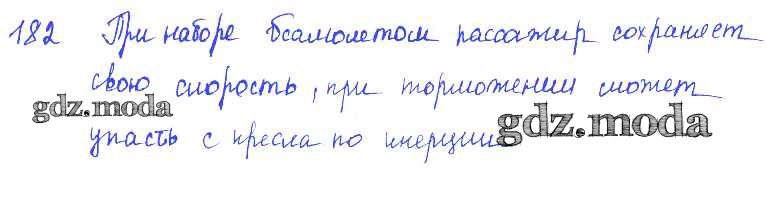 182 При наборе самолетом пассажир сохраняет
свою скорость, при торможении может
gdz.moda
упасть с кресла по инерции
gdz.moda